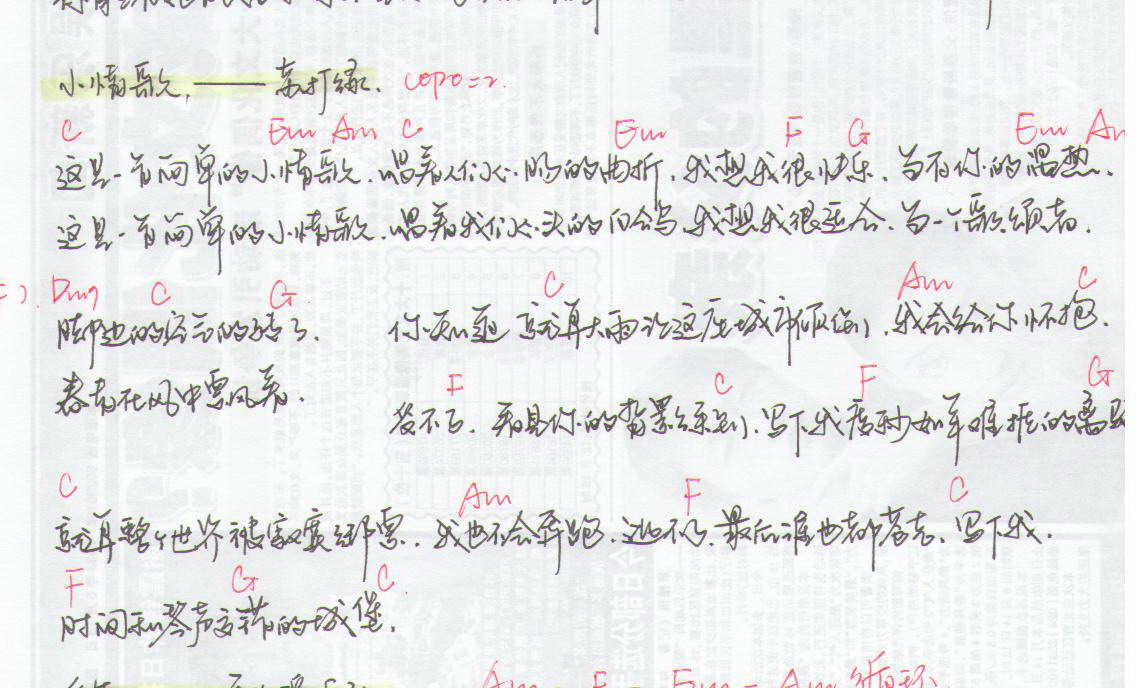 小情歌.——苏打绿. capo=2.
C Em Am C Em F G Em Am
这是一首简单的小情歌.唱着人们心肠的曲折.我想我很快乐.当有你的温热.
这是一首简单的小情歌.唱着我们心头的白鸽.我想我很适合.当一个歌颂者.
Dm7 C G. C Am C
脚边的空气的转了. 你知道 就算大雨让这座城市颠倒,我会给你怀抱.
F C F G
春去在风中飘着. 受不了.看见你的背影来到.写下我度秒如年难捱的离骚
C Am F C
就算整个世界被寂寞绑票.我也不会奔跑.逃不了.最后谁也都苍老.写下我.
F G C.
时间和琴声交错的城堡.
Am - F - Em - Am 循环.